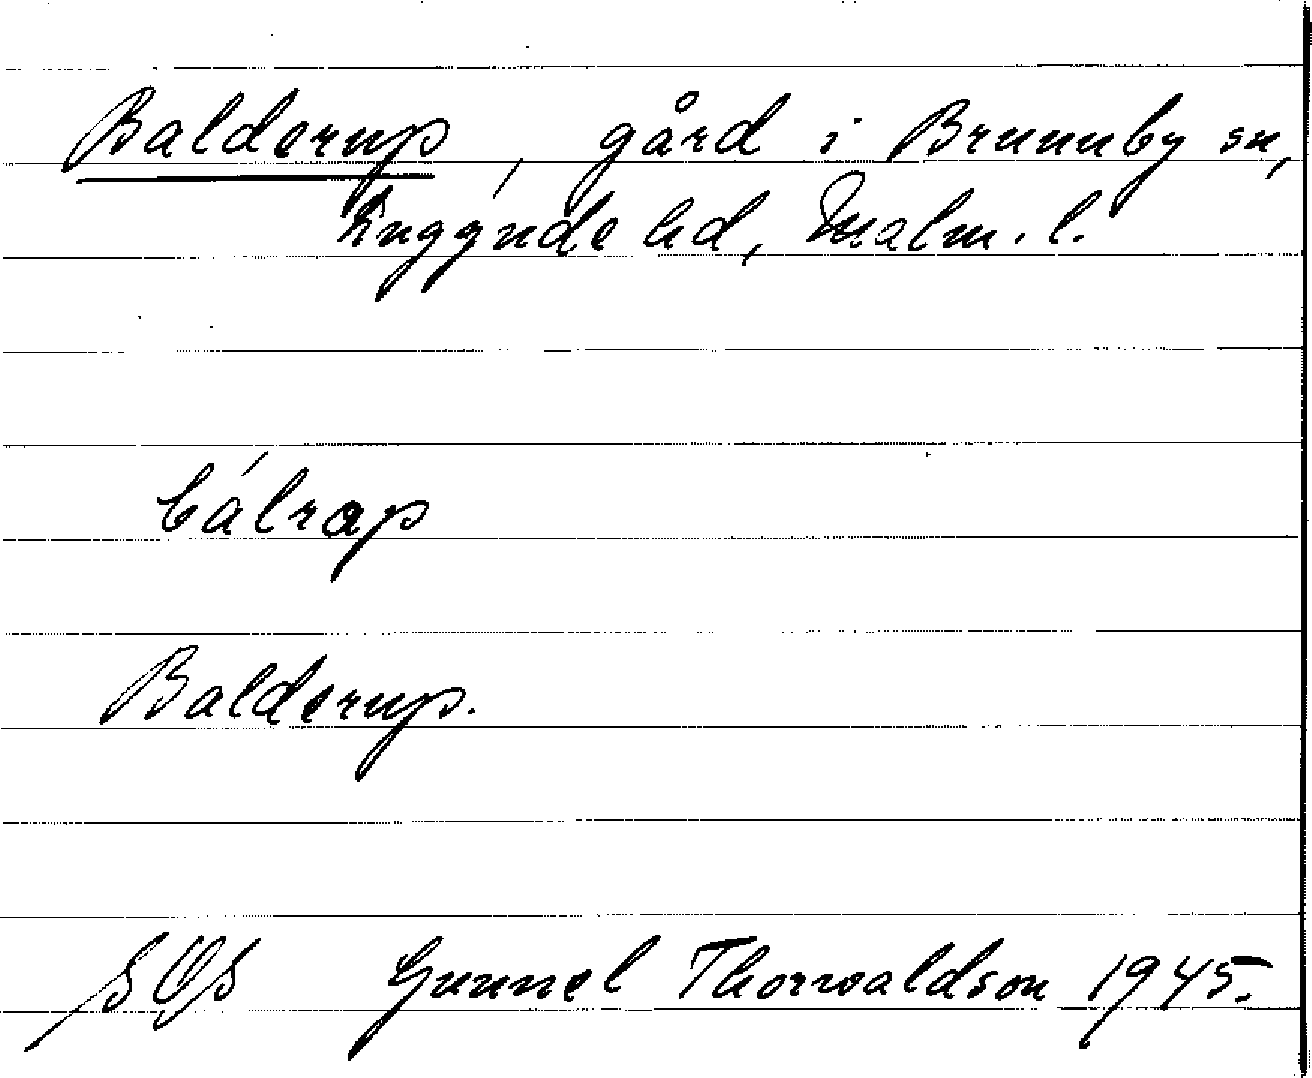 Balderup, gård i Brunnby sn,
Luggude hd, Malm. l.
bálrap
Balderup.
Gunnel Thorwaldson 1945.